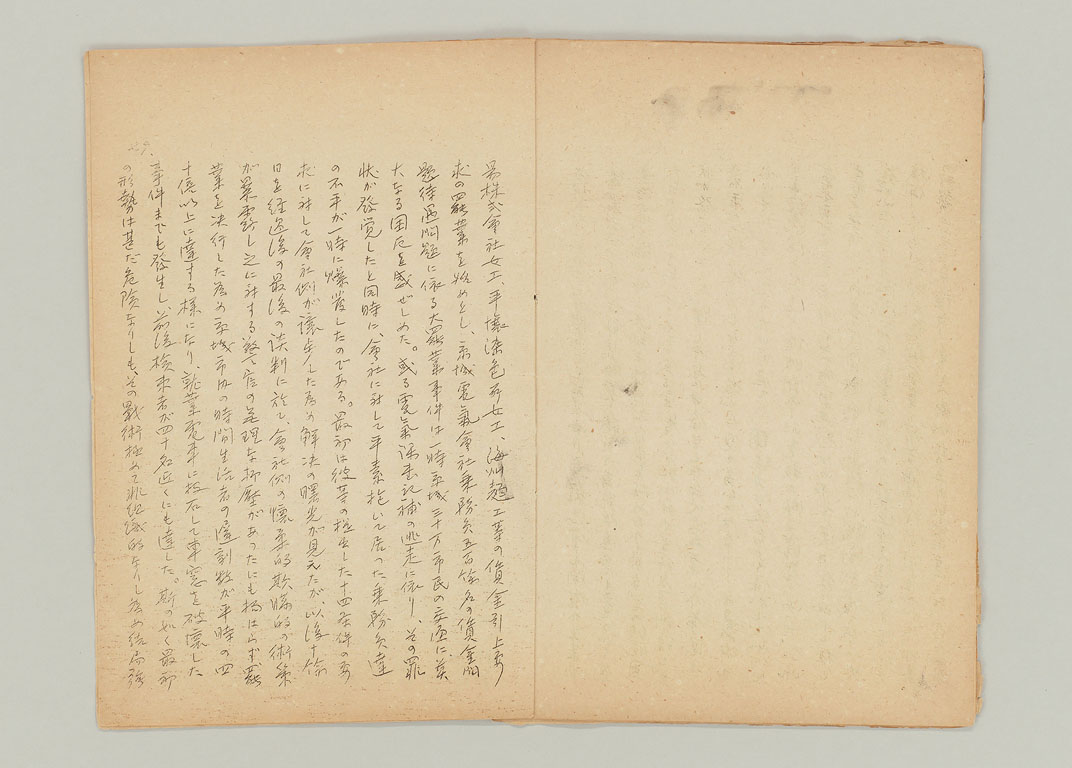 易株式會社女工、平壤染色所女工、海州麵工等の賃金引上要
求の罷業を始めとし、京城電氣會社乗務員五百餘名の賃金問
題待遇問題に依る大罷業事件は一時京城三十万市民の交通に莫
大なる困厄を感ぜしめた。或る電氣課書記補の逃走に依り、その罪
状が發覚したと同時に、會社に対して平素抱いて居った乗務員達
の不平が一時に爆発したのである。最初は彼等の提出した十四条件の要
求に対して會社側が讓歩した為め解決の曙光が見えたが、以後十餘
日を経過後の最後の談判に於て、會社側の懐柔的欺瞞的な術策
が暴露し之に対する警官の無理な抑壓があったにも拘はらず罷
業を決行した為め京城市內の時間生活者の遅刻数が平時の四
十倍以上に達する様になり、就業電車に投石して車窓を破壊した
事件までも發生し、前後検束者が四十名近くにも達した。斯の如く最初
の形勢は甚だ危険なりしも、その戰術極めて非組織的なりし為め結局強